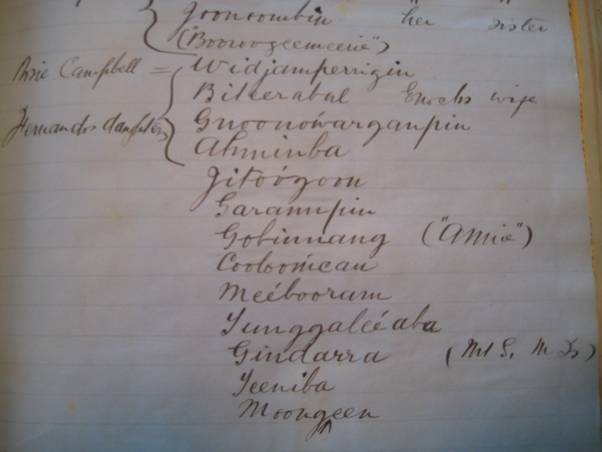 Gooncombin her sister
("Booroogeemeeie")
Rosie Campbell = Widjamperrigin
Bitterabul Enochs wife
Fernandos daughters Gnoonówarganpin
Ahminba
Jitoógoon
Garanupin
Gobinnang ("Amie")
Cooloomcan
Meébooram
Yunggaleéaba
Gindarra
Yeeniba
Moongeen